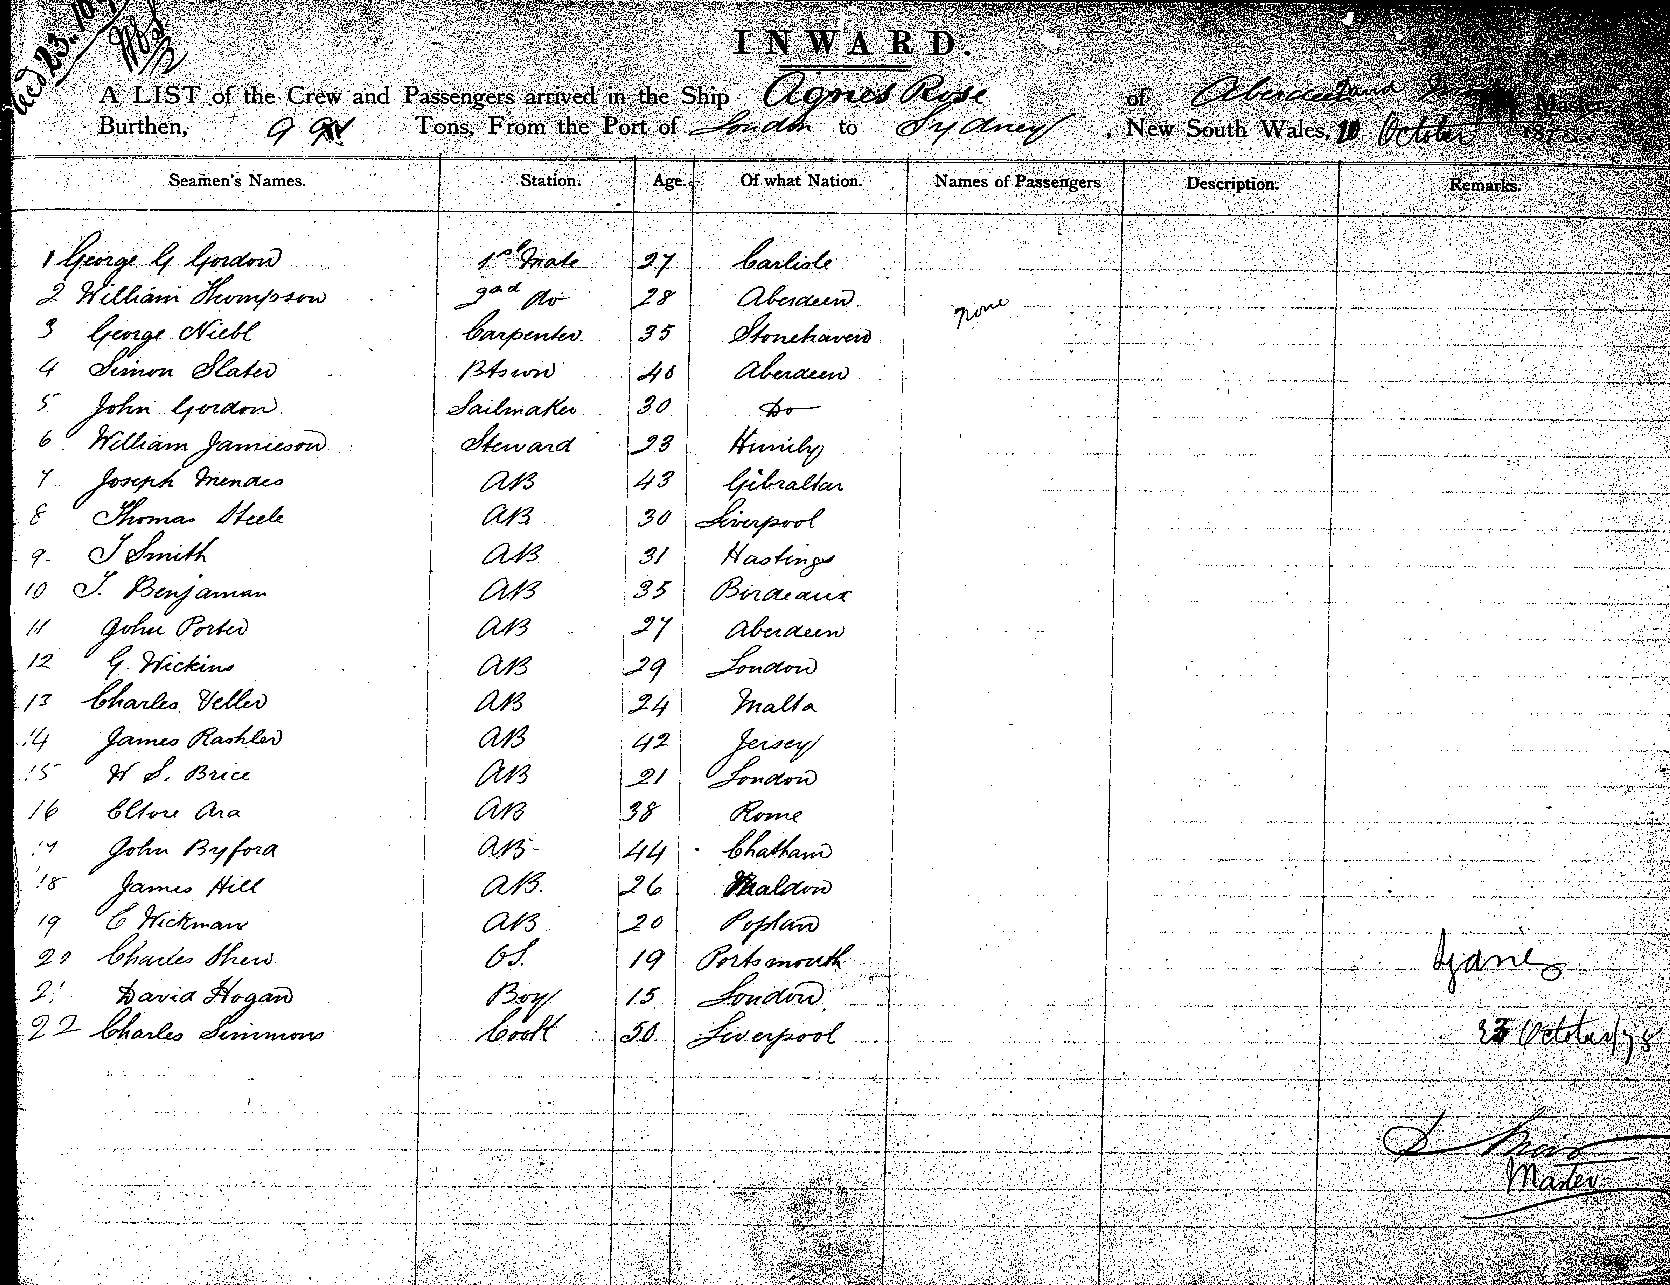 Recd 23.10.
INWARD.
A LIST of the Crew and Passengers arrived in the Ship Agnes Rose of Aberdeen
Burthen, Tons, From the Port of London to Sydney, New South Wales, October 187
Seamen's Names. Station. Age. Of what Nation. Names of Passengers Description. Remarks.
1 George G Gordon 1st Mate 27 Carlisle
2 William Thompson 2nd Do 28 Aberdeen None
3 George Niebl Carpenter 35 Stonehaven
4 Simon Slater Btswn 40 Aberdeen
5 John Gordon Sailmaker 30 Do
6 William Jamieson Steward 23
7 Joseph Mendes AB 43 Gibraltar
8 Thomas Steele AB 30 Liverpool
9 J Smith AB 31 Hastings
10 J. Benjaman AB 35 Bordeaux
11 John Porter AB 27 Aberdeen
12 G. Wickins AB 29 London
13 Charles Veller AB 24 Malta
14 James Rashler AB 42 Jersey
15 W S. Brice AB 21 London
16 Ettore Ara AB 38 Rome
17 John Byford AB 44 Chatham
18 James Hill AB. 26 Maldon
19 C Wickman AB 20 Poplar
20 Charles Shew OS. 19 Portsmouth
Sydney
21 David Hogan Boy 15 London
22 Charles Simmons Cook 50 Liverpool 23 October/78
Master